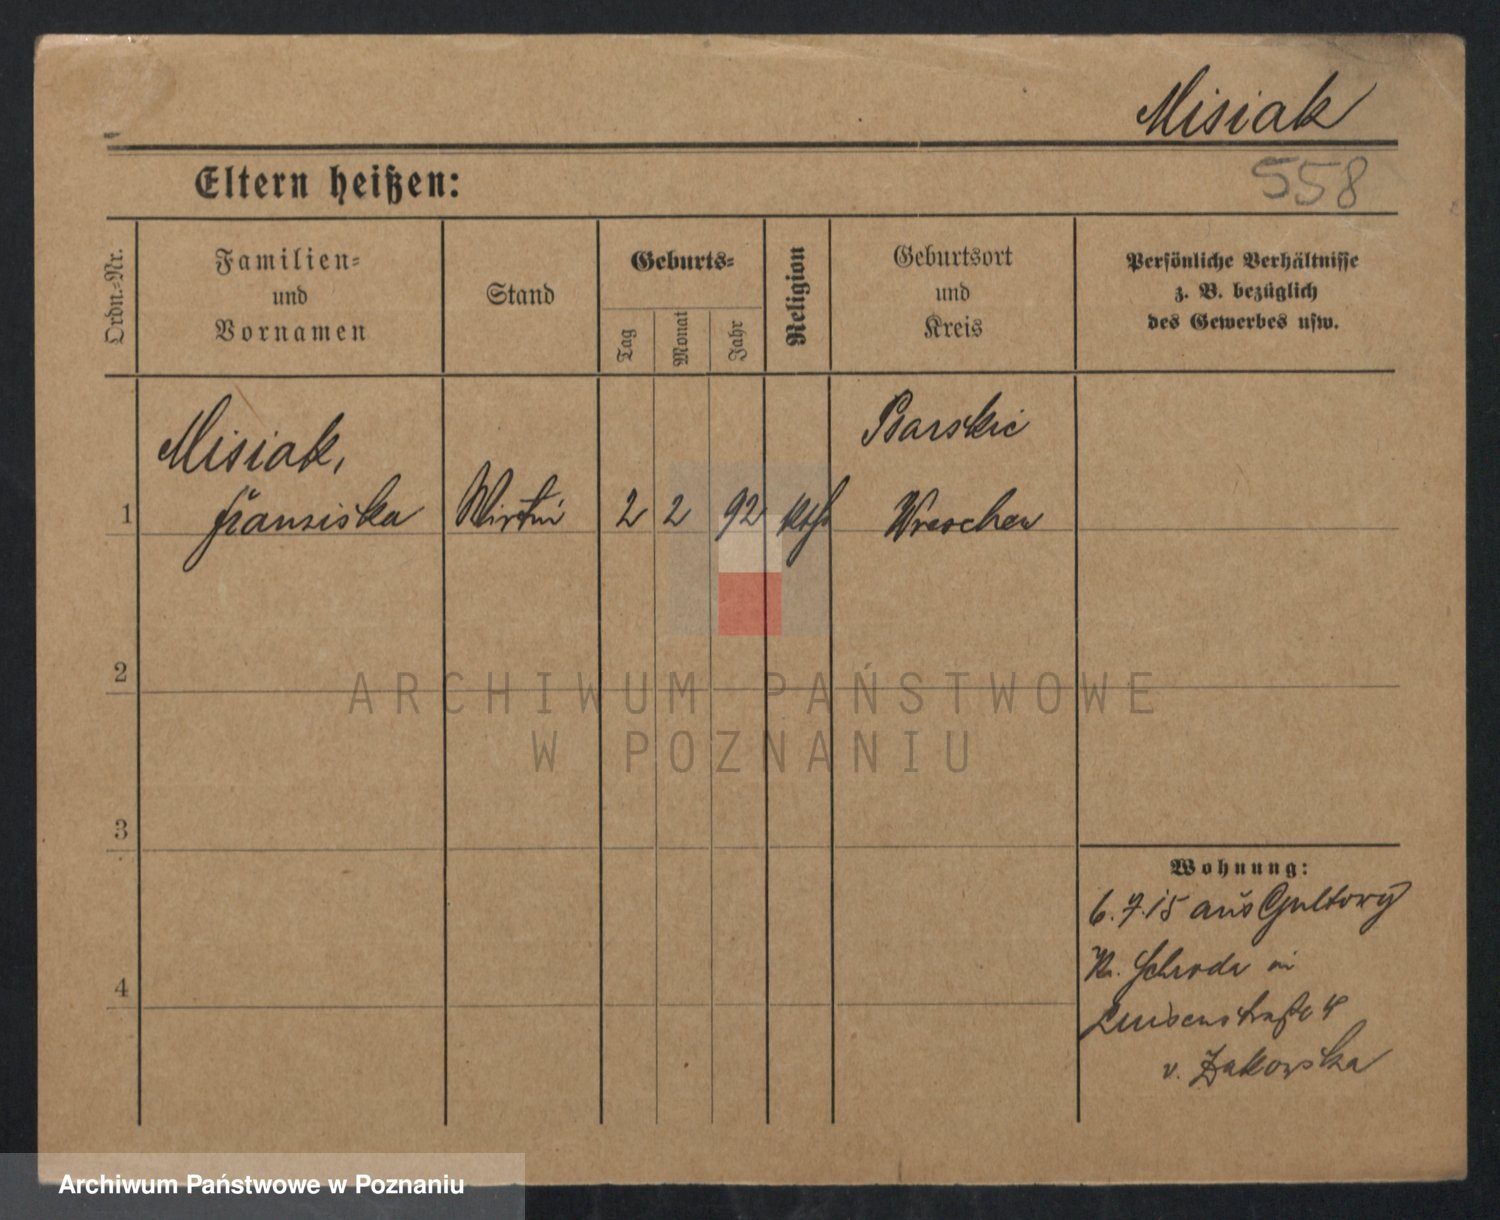 Misiak
558
Eltern heißen:
Ordn.-Nr.
Familien-
und
Vornamen
Stand
Geburts-
Tag
Monat
Jahr
Religion
Geburtsort
und
Kreis
Persönliche Verhältnisse
z. B. bezüglich
des Gewerbes usw.
Misiak,
1 Franziska Wirtin 2 2 92 kath
Psarskie
Wreschen
2
3
4
Wohnung:
6.7.15 aus Gultowy
Kr. Schroda in
Luisenstraße 4
v. Zakowska
ARCHIWUM PAŃSTWOWE
W POZNANIU
Archiwum Państwowe w Poznaniu